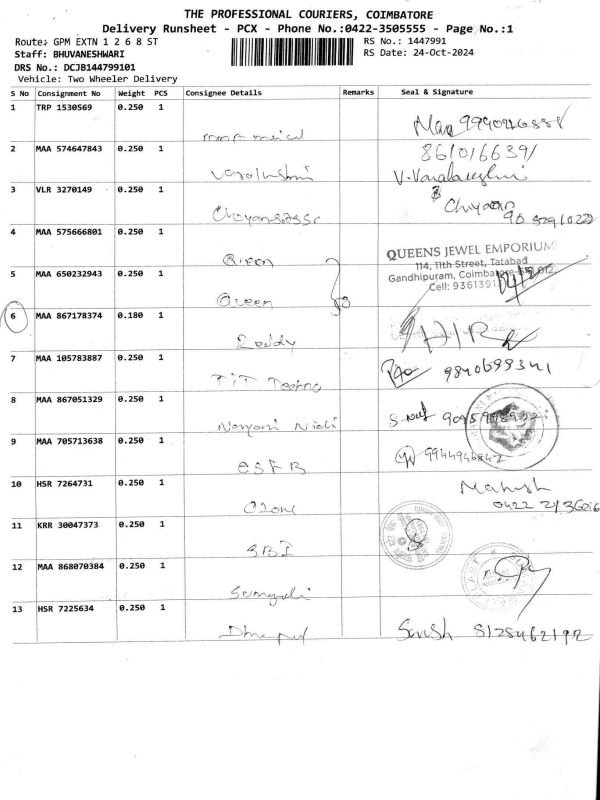 THE PROFESSIONAL COURIERS, COIMBATORE
Delivery Runsheet - PCX - Phone No.:0422-3505555 - Page No.:1
Route: GPM EXTN 1 2 6 8 ST RS No.: 1447991
Staff: BHUVANESHWARI RS Date: 24-Oct-2024
DRS No.: DCJB144799101
Vehicle: Two Wheeler Delivery
S No Consignment No Weight PCS Consignee Details Remarks Seal & Signature
1 TRP 1530569 0.250 1
2 MAA 574647843 0.250 1 861016639/
V. Varalakshmi
3 VLR 3270149 0.250 1
4 MAA 575666801 0.250 1 Queen QUEENS JEWEL EMPORIUM
114, 11th Street, Tatabad
5 MAA 650232943 0.250 1 Queen Gandhipuram, Coimbatore-
Cell:
6 MAA 867178374 0.180 1 Reddy
7 MAA 105783887 0.250 1 TIT 9840699341
8 MAA 867051329 0.250 1 Narayani Nidi
9 MAA 705713638 0.250 1 ESFB 9944946842
10 HSR 7264731 0.250 1 Ozone Mahesh
0422
11 KRR 30047373 0.250 1 SBI
12 MAA 868070384 0.250 1
13 HSR 7225634 0.250 1 8128462192